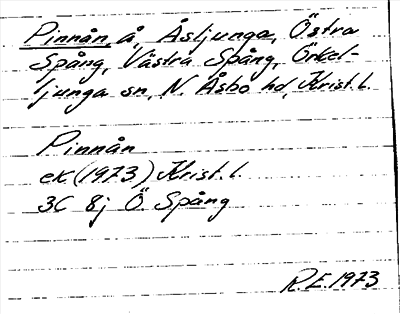 Pinnån, å, Åsljunga, Östra
Spång, Västra Spång, Örkel-
ljunga sn, N. Åsbo hd, Krist. l.
Pinnån
ek (1973) Krist. l.
3C 8j Ö Spång
R.E. 1973